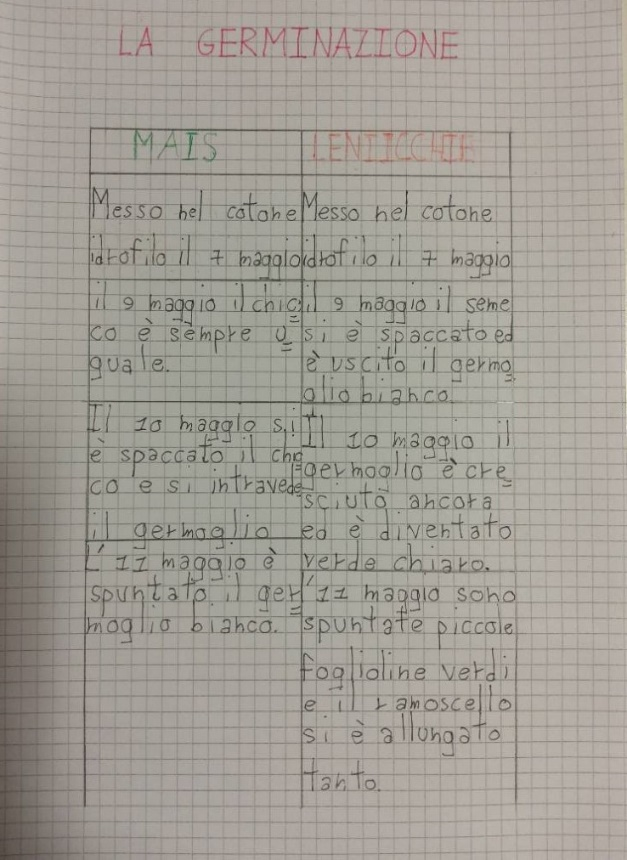 LA GERMINAZIONE
MAIS
LENTICCHIE
Messo nel cotone
idrofilo il 7 maggio
Messo nel cotone
idrofilo il 7 maggio
il 9 maggio il chic
co è sempre u
guale.
il 9 maggio il seme
si è spaccato ed
è uscito il germo
glio bianco.
Il 10 maggio si
è spaccato il chic
co e si intravede
il germoglio
Il 10 maggio il
germoglio è cre
sciuto ancora
ed è diventato
verde chiaro.
L'11 maggio è
spuntato il ger
moglio bianco.
L'11 maggio sono
spuntate piccole
foglioline verdi
e il ramoscello
si è allungato
tanto.